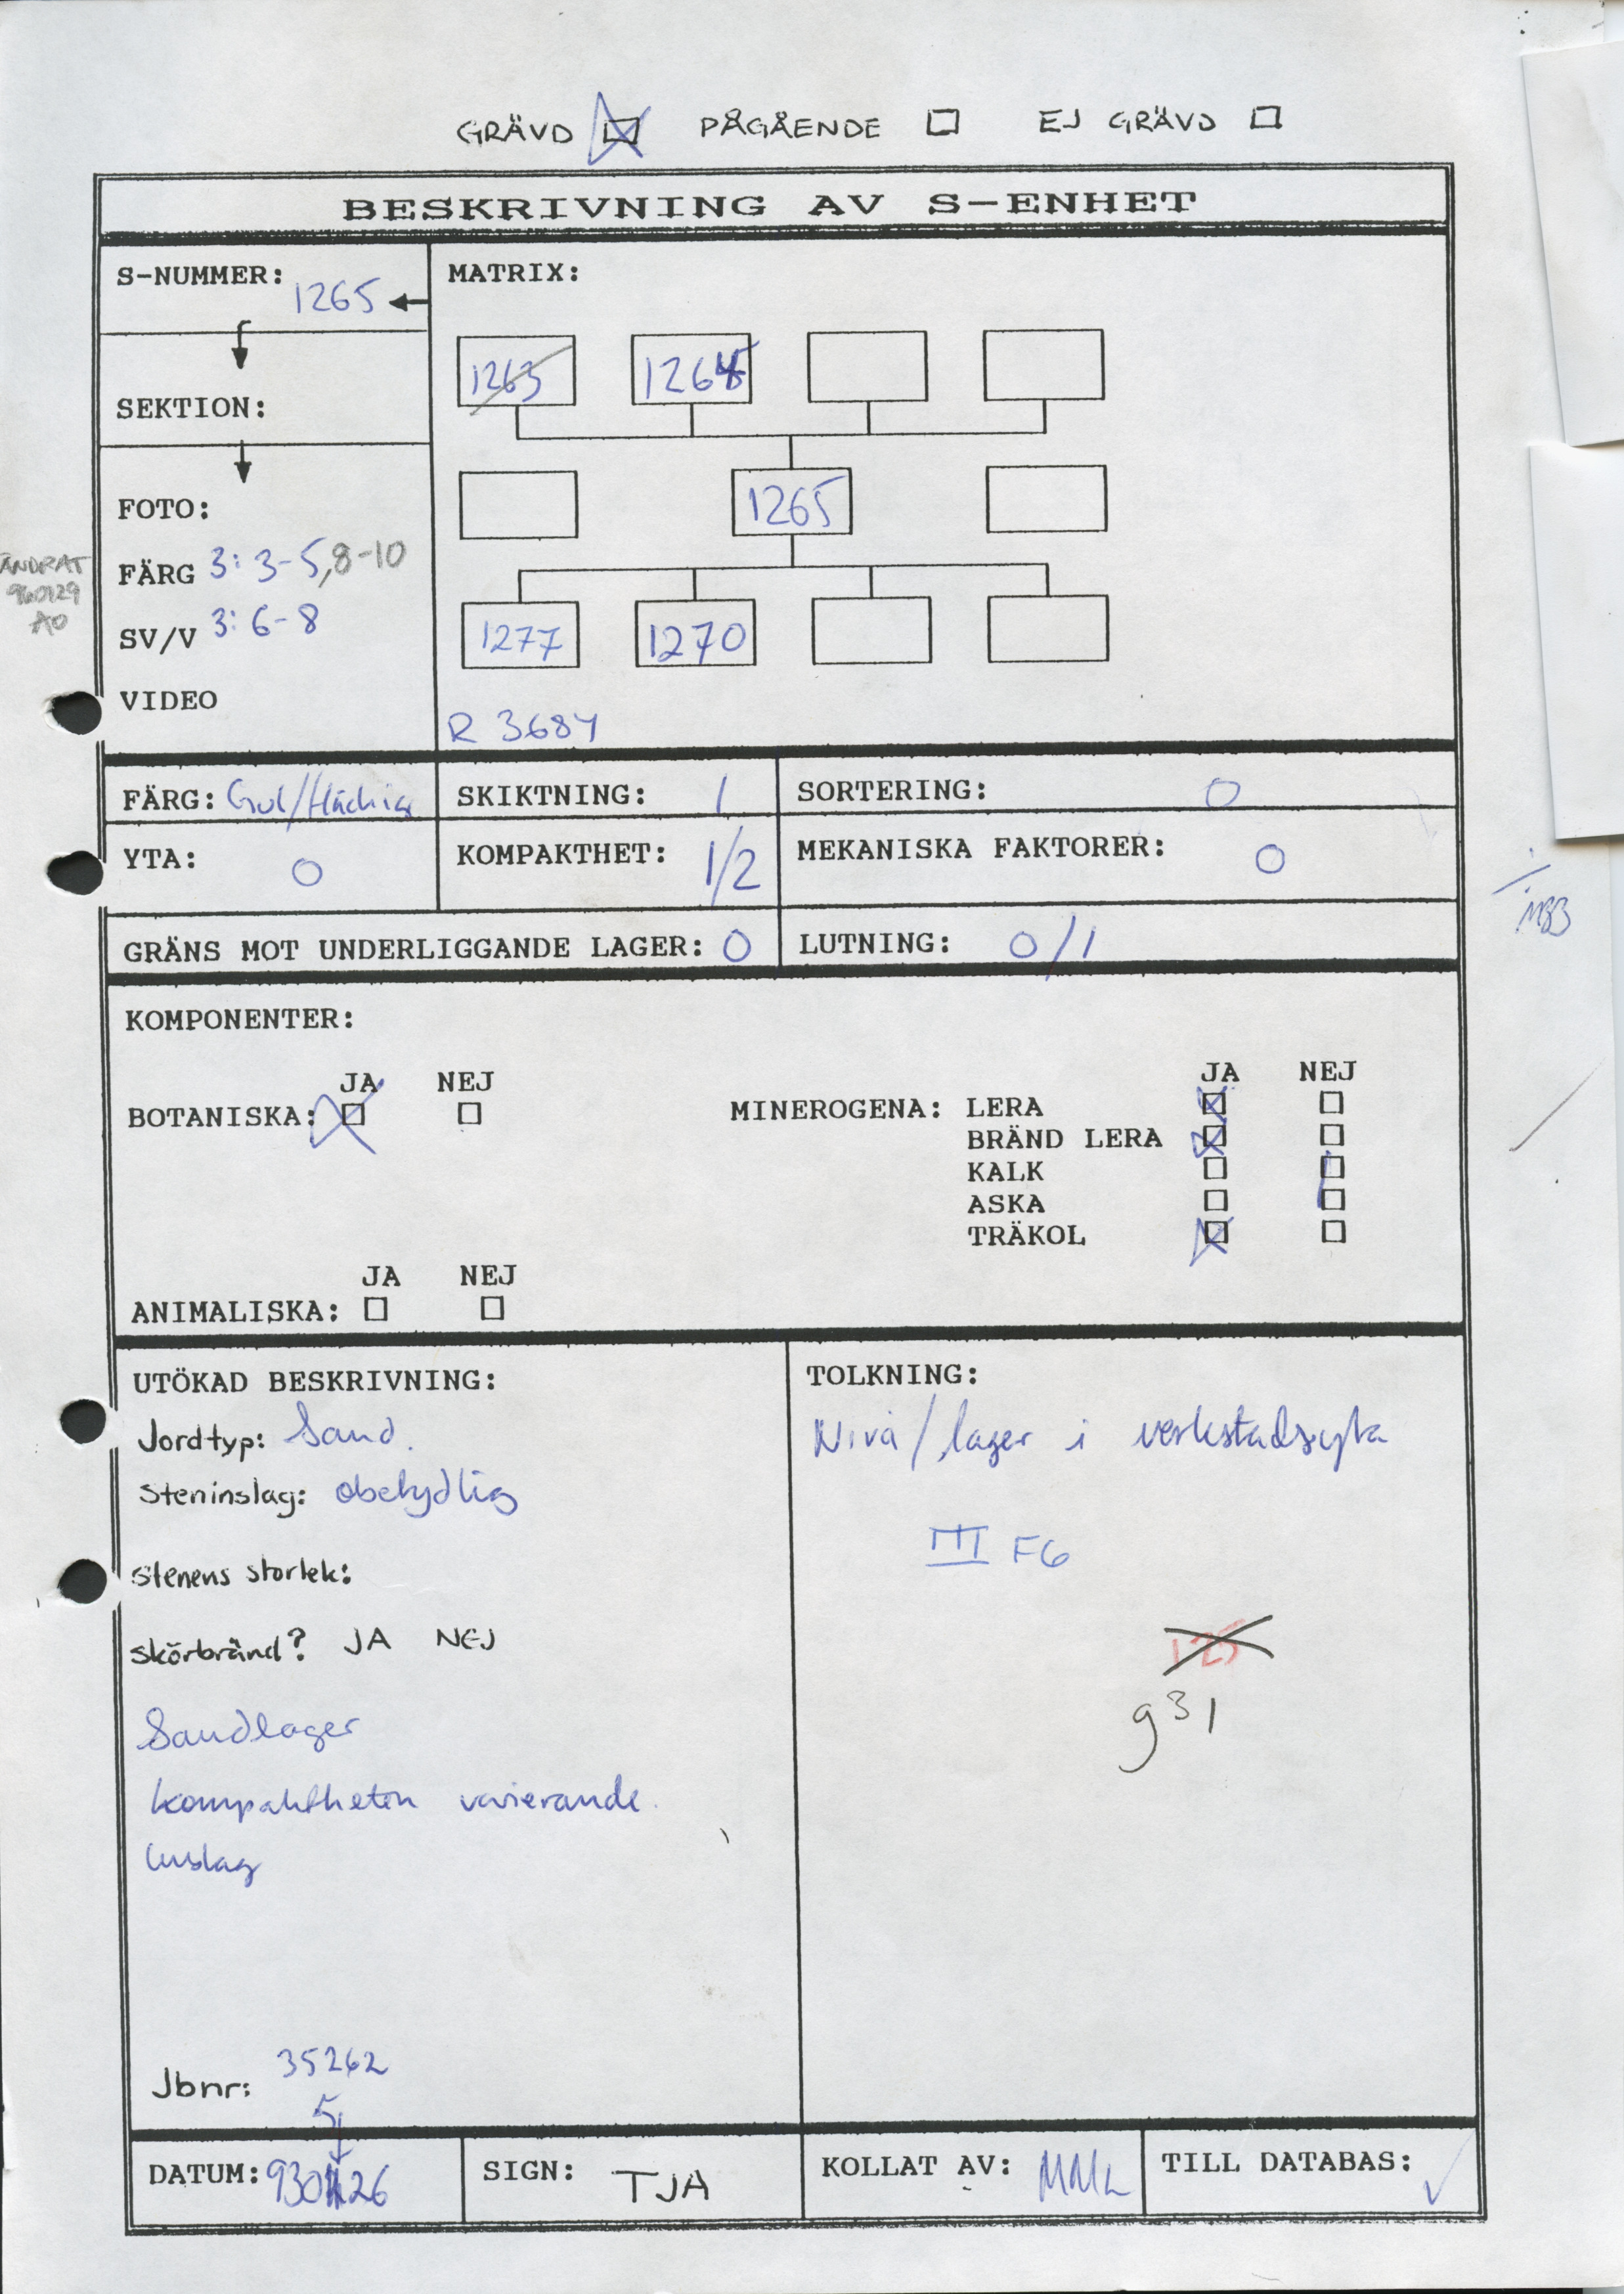 GRÄVD PÅGÅENDE EJ GRÄVD
BESKRIVNING AV S-ENHET
S-NUMMER: 1265
MATRIX:
1263 1264
SEKTION:
1265
FOTO:
FÄRG 3: 3-5, 8-10
ÄNDRAT
960129
AO
SV/V 3: 6-8
1277 1270
VIDEO
R 3684
FÄRG: Gul/fläckig SKIKTNING: 1 SORTERING: 0
YTA: 0 KOMPAKTHET: 1/2 MEKANISKA FAKTORER: 0
GRÄNS MOT UNDERLIGGANDE LAGER: 0 LUTNING: 0/1
KOMPONENTER:
JA NEJ JA NEJ
BOTANISKA: MINEROGENA: LERA
BRÄND LERA
KALK
ASKA
TRÄKOL
JA NEJ
ANIMALISKA:
UTÖKAD BESKRIVNING:
Jordtyp: Sand.
Steninslag: obetydlig
Stenens storlek:
Skörbränd? JA NEJ
Sandlager
kompaktheten varierande.
Inslag
Jbnr: 35262
5
TOLKNING:
Nivå/lager i verkstadsyta
III F6
125
931
DATUM: 26 SIGN: TJA KOLLAT AV: TILL DATABAS: